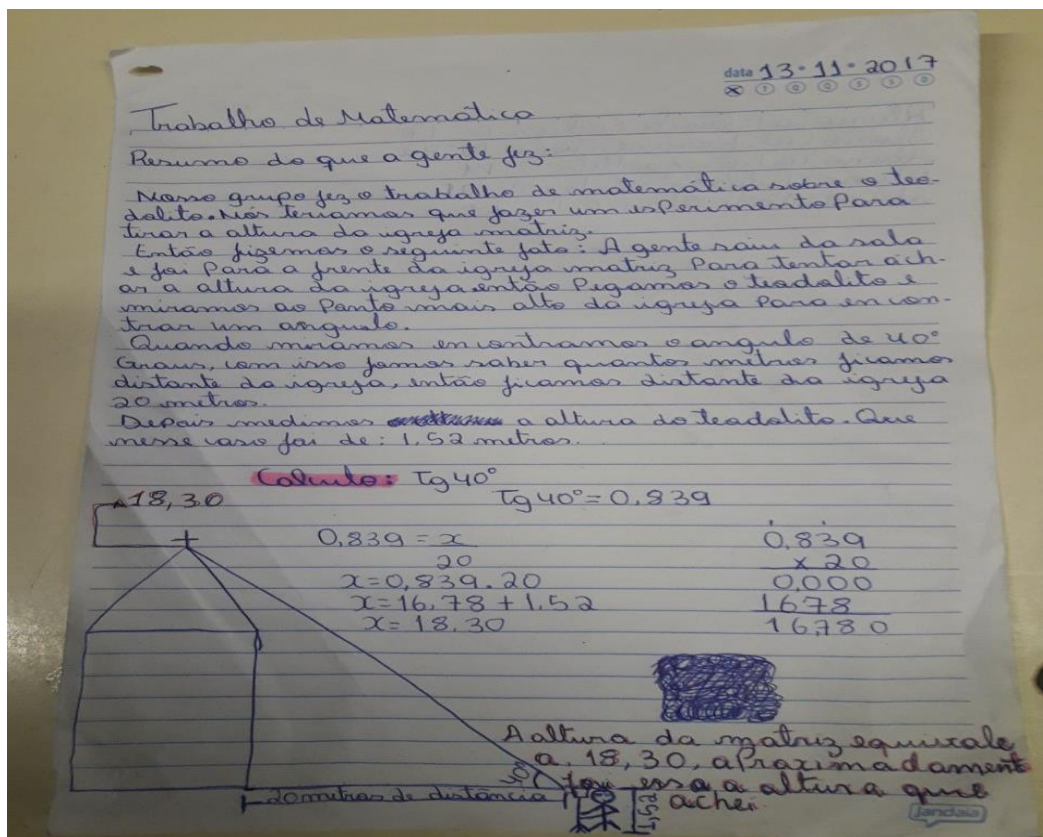 data 13-11-2017
Trabalho de Matematica
Resumo do que a gente fez:
Nosso grupo fez o trabalho de matemática sobre o teo-
dolito. Nós teriamos que fazer um esperimento para
tirar a altura da igreja matriz.
Então fizemos o seguinte fato: A gente saiu da sala
e foi para a frente da igreja matriz para tentar ach-
ar a altura da igreja então pegamos o teodolito e
miramos ao ponto mais alto da igreja para encon-
trar um angulo.
Quando miramos encontramos o angulo de 40°
Graus, com isso fomos saber quantos metros ficamos
distante da igreja, então ficamos distante da igreja
20 metros.
Depois medimos a altura do teodolito. Que
nesse caso foi de: 1,52 metros.
Calculo: Tg 40°
Tg 40° = 0,839
18,30
0,839 = x
20
x = 0,839 . 20
x = 16,78 + 1,52
x = 18,30
0,839
x 20
0,000
1678
16,780
A altura da matriz equivale
a 18,30, aproximadamente
foi essa a altura que
achei.
40°
20 metros de distância
Jandaia